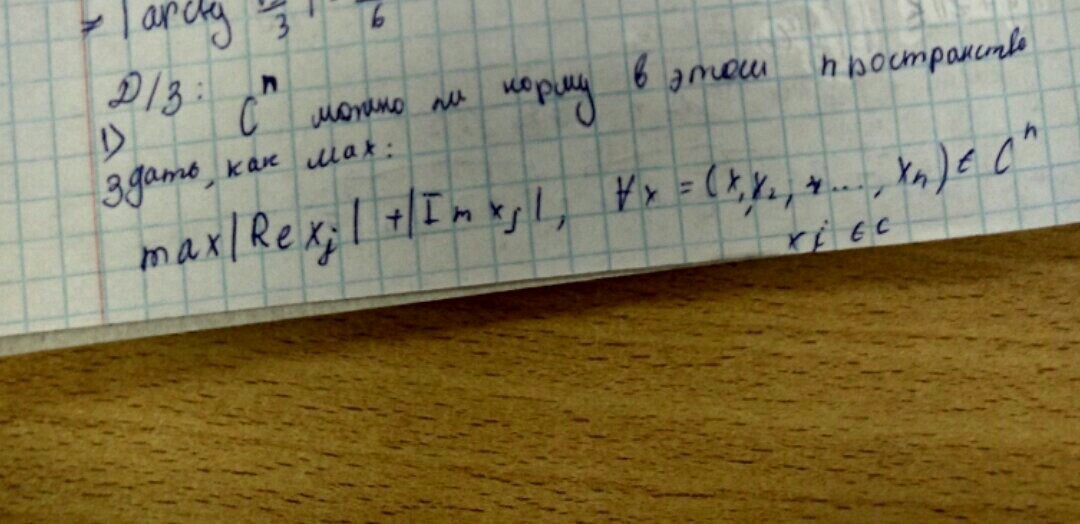 = | arctg π/3 | - π/6
Д/З: Cⁿ можно ли норму в этом пространстве
1)
здать, как max:
max|Re xj| + |Im xj|, ∀x = (x₁, x₂, ..., xₙ) ∈ Cⁿ
xj ∈ C